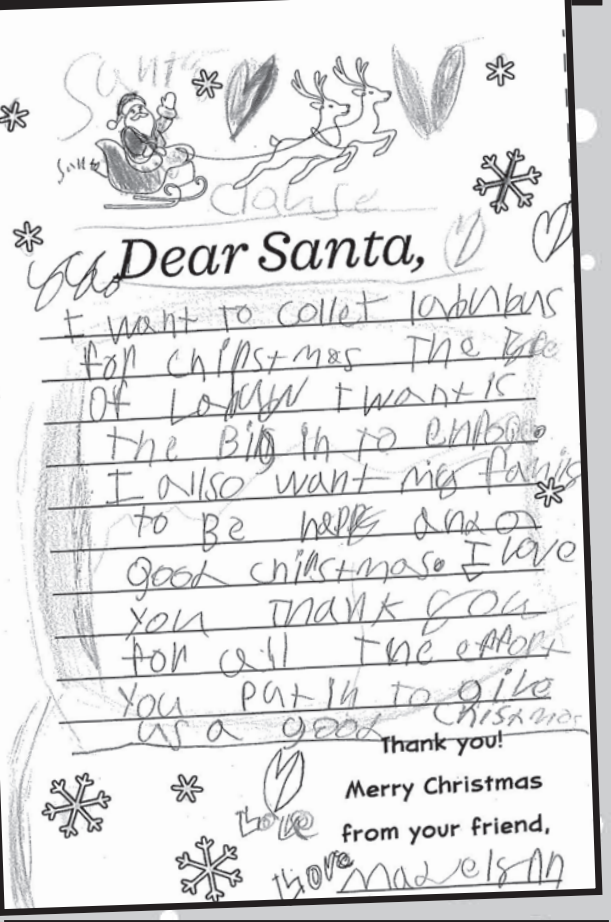 Santa
Santa
Clause
Dear Santa,
I want to collet labubus
for chirstmas The
Of I want is
the Big in to
I also want my
to Be happy and a
good chirstmas. I love
you Thank you
for all The effort
you put in to give
us a good Chistmas
Thank you!
Merry Christmas
Love from your friend,
Love